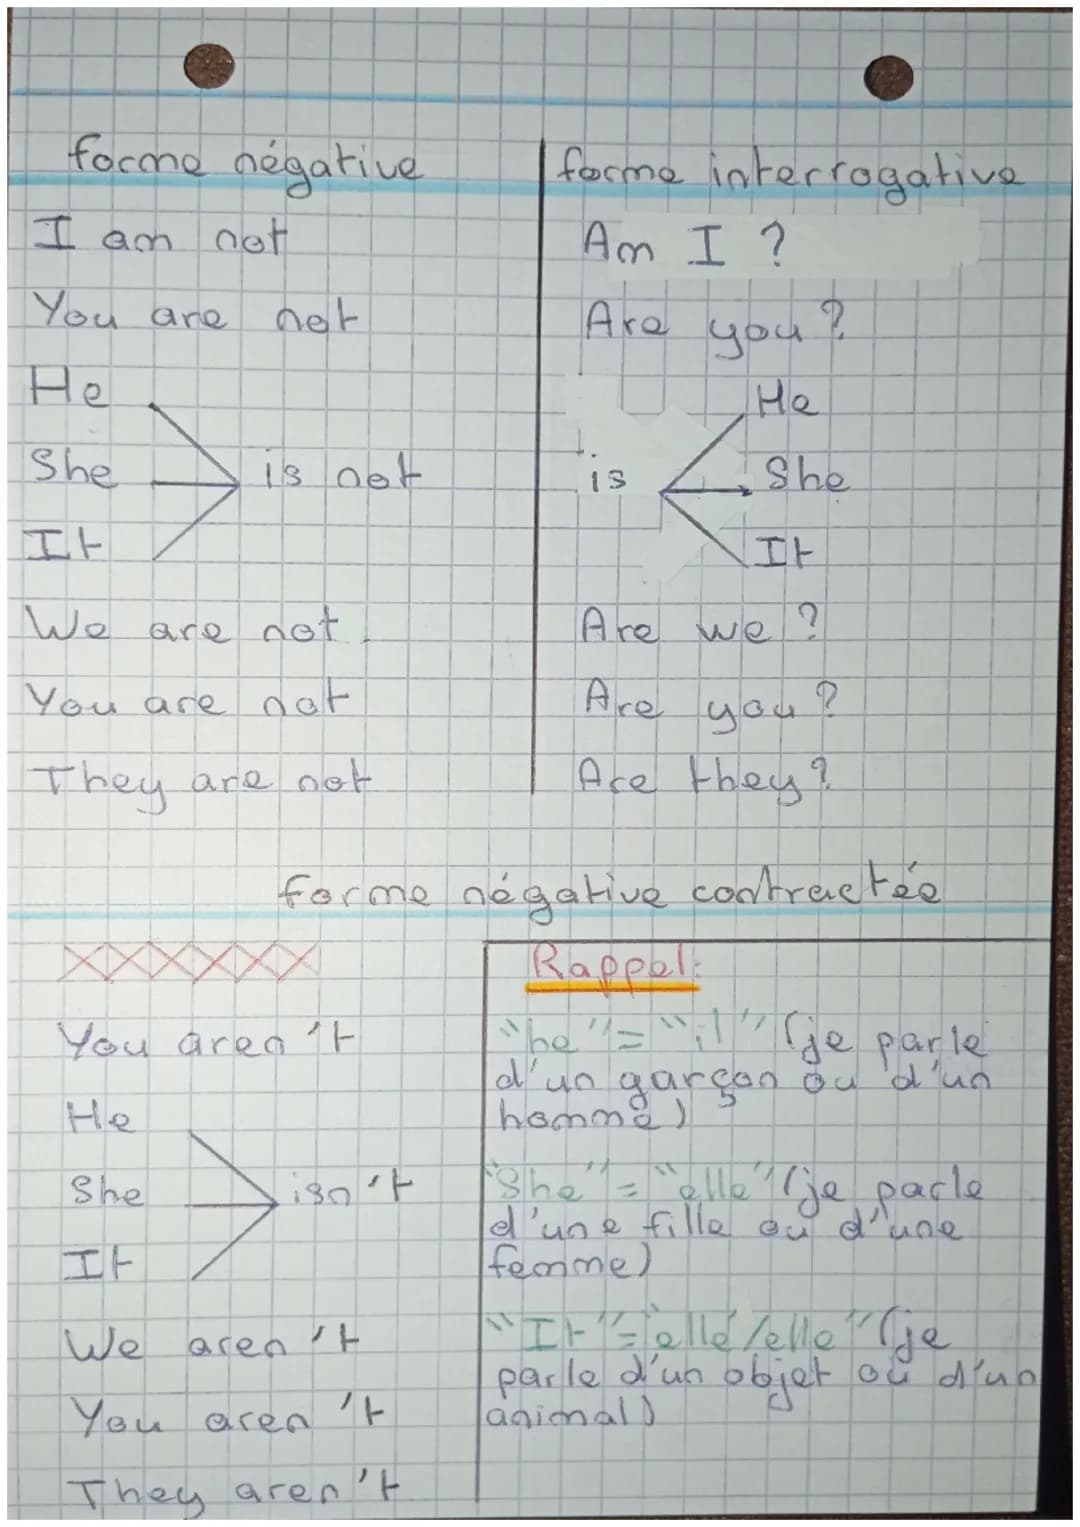 forme négative
I am not
You are not
He
She
is not
It
We are not.
You are not
They are not
forme interrogative
Am I ?
Are you ?
He
is
She
It
Are we ?
Are you ?
Are they ?
forme négative contractée
You aren't
He
She
isn't
It
We aren't
You aren't
They aren't
Rappel:
"he" = "il" (je parle
d'un garçon ou d'un
homme)
"She" = "elle" (je parle
d'une fille ou d'une
femme)
"It" = "elle/elle" (je
parle d'un objet ou d'un
animal)